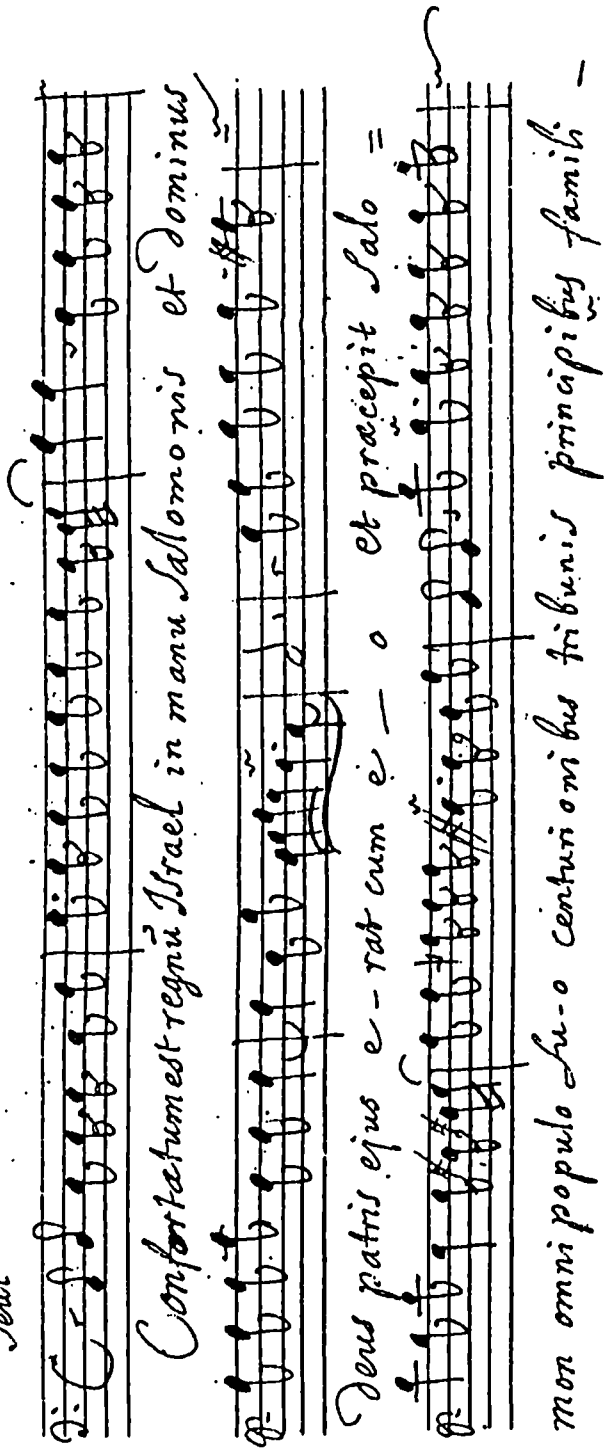 Confortatum est regnū Israel in manu Salomonis et dominus
Deus patris ejus e - rat cum e — o et præcepit Salo =
mon omni populo su - o centurionibus tribunis principibus famili -